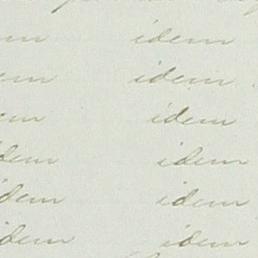 idem idem
idem idem
idem idem
idem idem
idem idem
idem idem